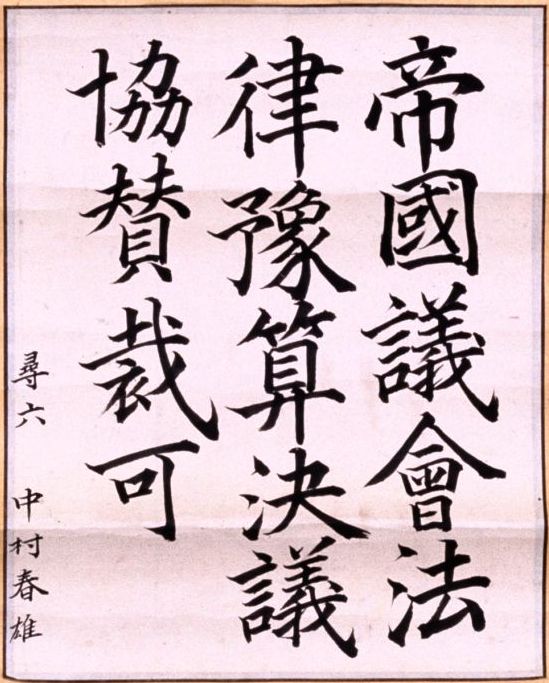 帝國議會法
律豫算決議
協賛裁可
尋六 中村春雄